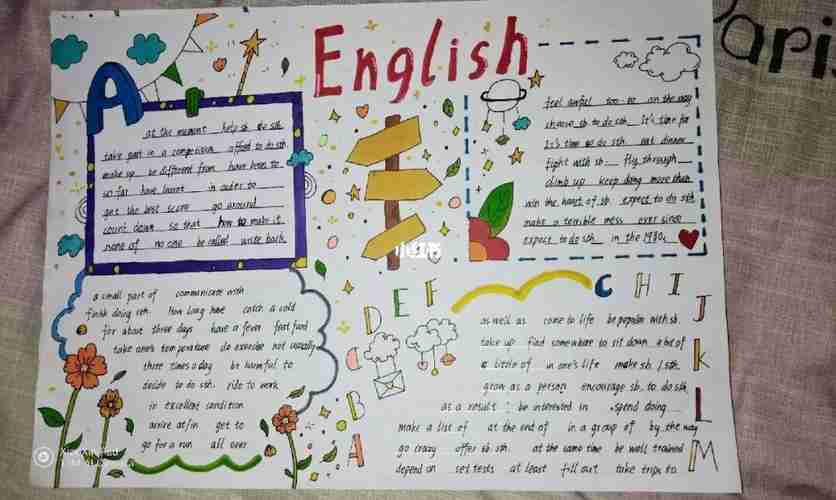 English
A
at the moment help sb do sth
take part in a competition afford to do sth
make up be different from have been to
so far have learnt in order to
get the best score go around
count down so that how to make it
none of no one be called write back
feel awful too to on the way
choose sb to do sth It's time for
It's time to do sth eat dinner
fight with sb fly through
climb up keep doing more than
win the heart of sb expect to do sth
make a terrible mess ever since
expect to do sth in the 1980s
小红书
a small part of communicate with
finish doing sth. How long have catch a cold
for about three days have a fever fast food
take one's temperature do exercise not usually
three times a day be harmful to
decide to do sth. ride to work
in excellent condition
arrive at/in get to
go for a run all over
D E F
B
A
C H I
J
K
L
M
as well as come to life be popular with sb.
take up find somewhere to sit down a bit of
a little of in one's life make sb. / sth.
grow as a person encourage sb. to do sth
as a result be interested in spend doing
make a list of at the end of in a group of by the way
go crazy offer sb. sth. at the same time be well trained
depend on set tests at least fill out take trips to
Paris